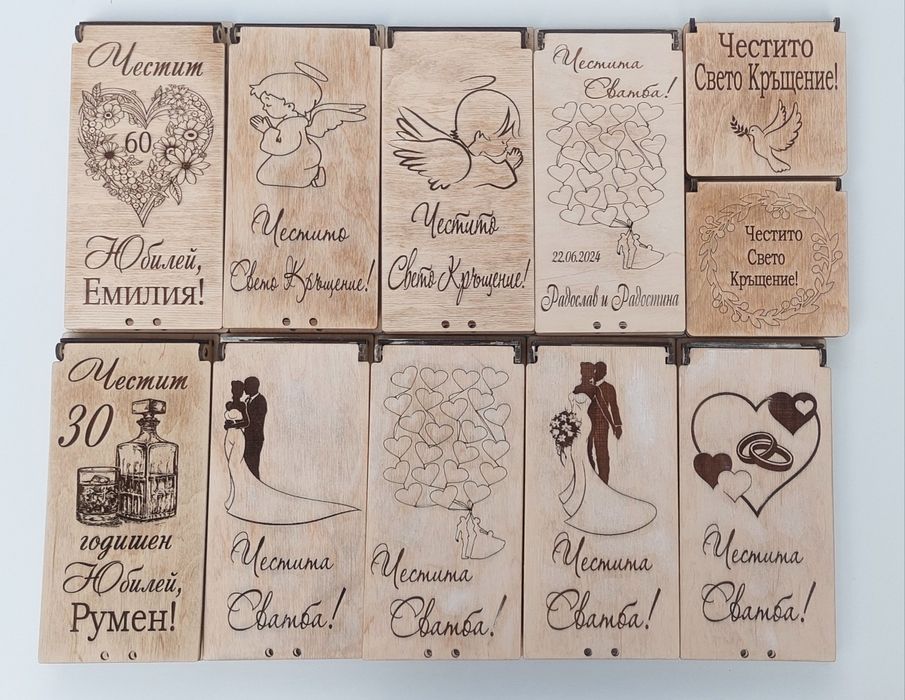 Честит
60
Юбилей,
Емилия!
Честито
Свето Кръщение!
Честито
Свето Кръщение!
Честита
Сватба!
22.06.2024
Радослав и Радостина
Честито
Свето Кръщение!
Честито
Свето
Кръщение!
Честит
30
годишен
Юбилей,
Румен!
Честита
Сватба!
Честита
Сватба!
Честита
Сватба!
Честита
Сватба!